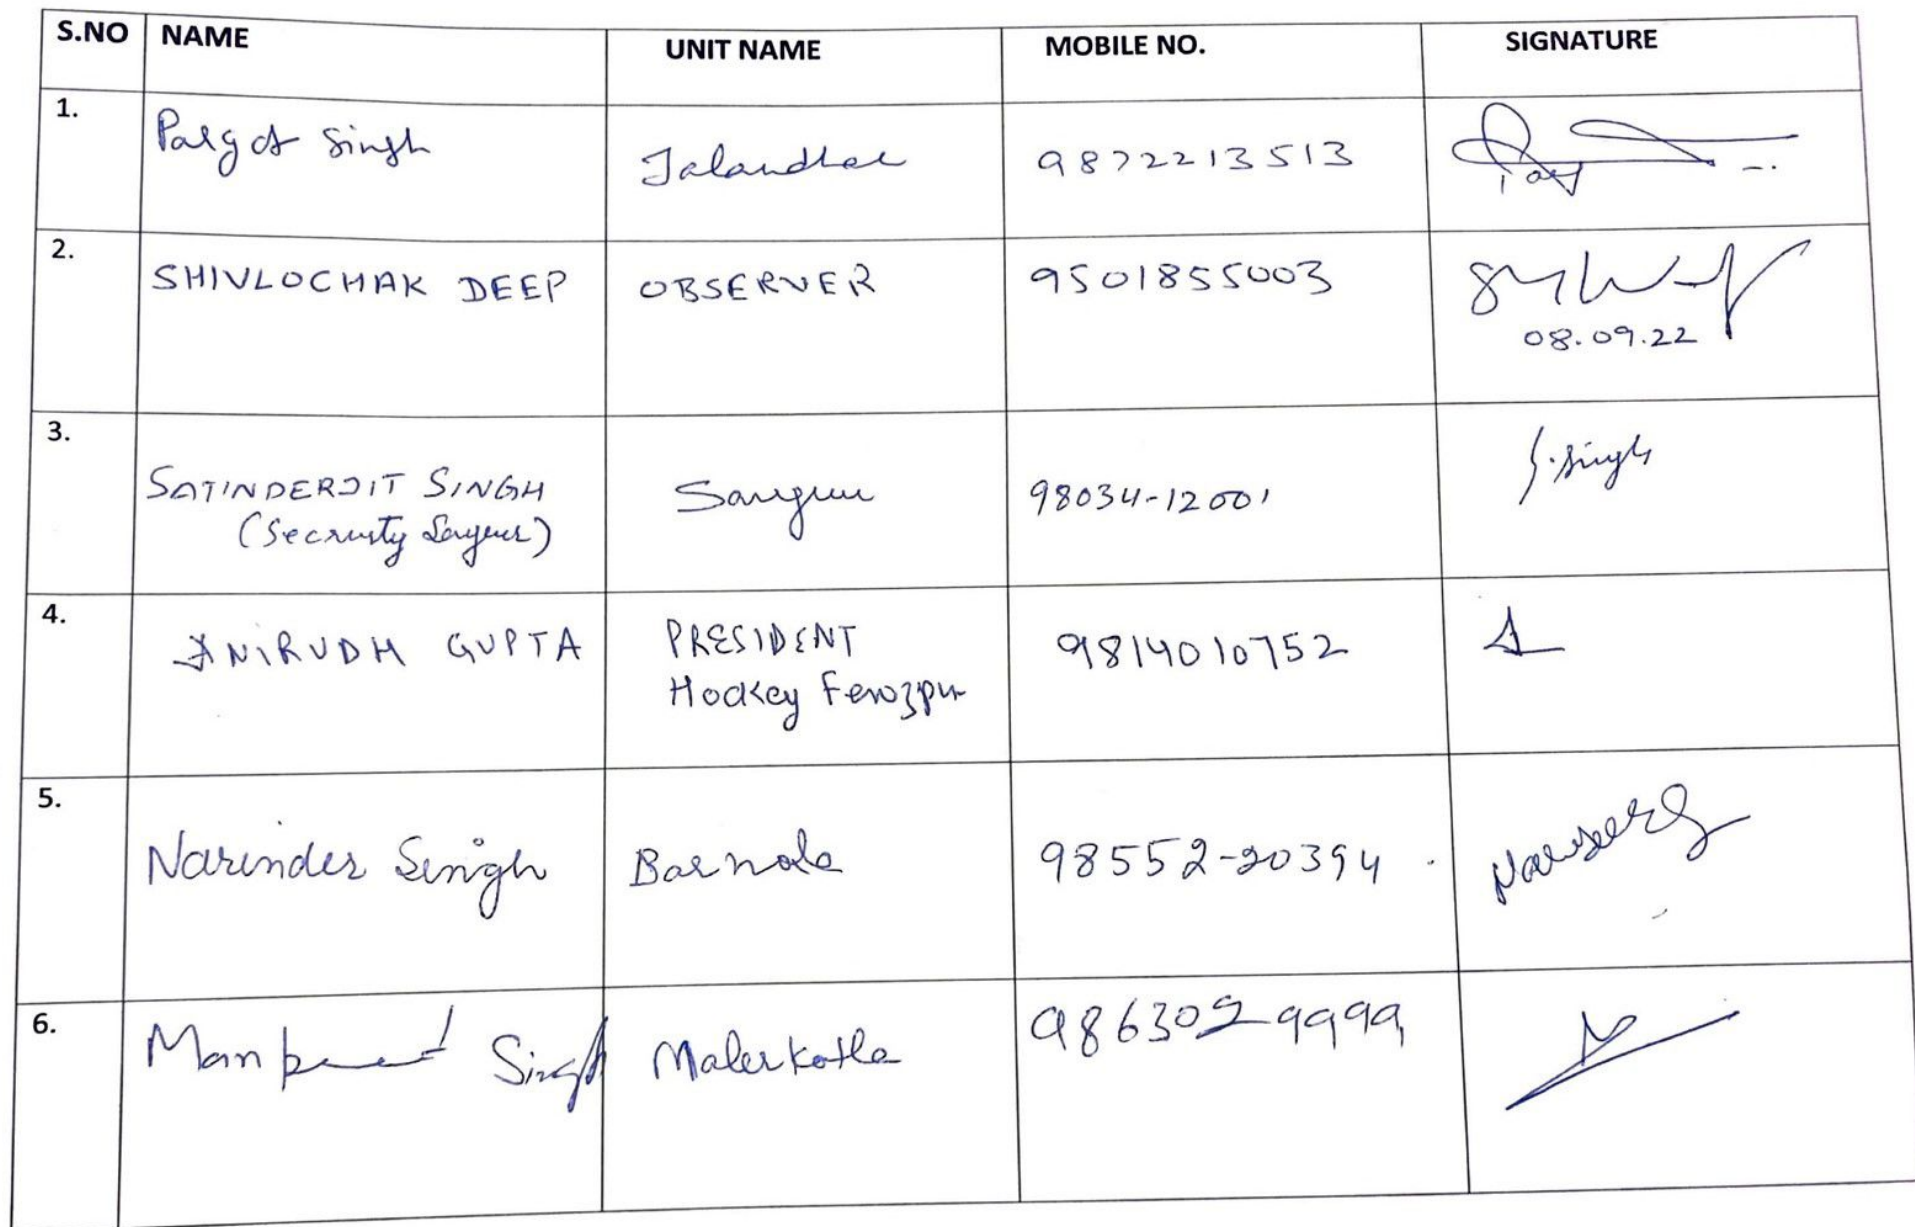 S.NO NAME UNIT NAME MOBILE NO. SIGNATURE
1. Pargat Singh Jalandhar 9872213513
2. SHIVLOCHAK DEEP OBSERVER 9501855003
08.09.22
3. SATINDERJIT SINGH Sangrur 98034-12001 S.Singh
4. ANIRUDH GUPTA PRESIDENT 9814010752
Hockey Ferozpur
5. Narinder Singh Barnala 98552-20394
6. Singh Malerkotla 9863029999